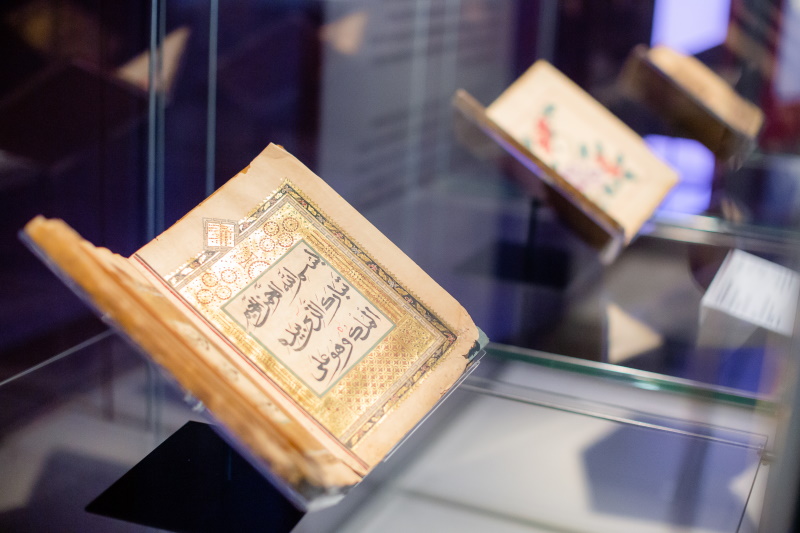 بسم الله الرحمن الرحيم
تبارك الذي بيده
الملك وهو على